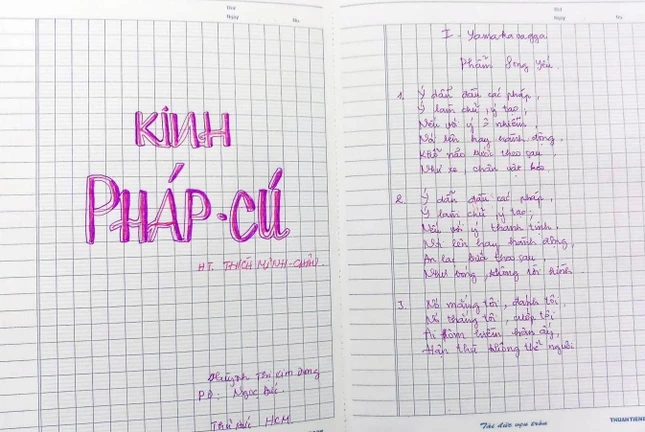 Thứ
Ngày
No.
KINH
PHÁP-CÚ
HT. THÍCH MINH-CHÂU.
Huỳnh Thị Kim Dung
PD. Ngọc Đức.
Thủ Đức HCM.
Thứ
Ngày
No.
I - Yamakavagga
Phẩm Song Yếu
1. Ý dẫn đầu các pháp,
Ý làm chủ, ý tạo,
Nếu với ý ô nhiễm,
Nói lên hay hành động,
Khổ não bước theo sau,
Như xe chân vật kéo.
2. Ý dẫn đầu các pháp,
Ý làm chủ, ý tạo,
Nếu với ý thanh tịnh,
Nói lên hay hành động,
An lạc bước theo sau,
Như bóng, không rời hình.
3. Nó mắng tôi, đánh tôi,
Nó thắng tôi, cướp tôi
Ai ôm hiềm hận ấy,
Hận thù không thể nguôi
Tài đức vẹn toàn
THUANTIEN